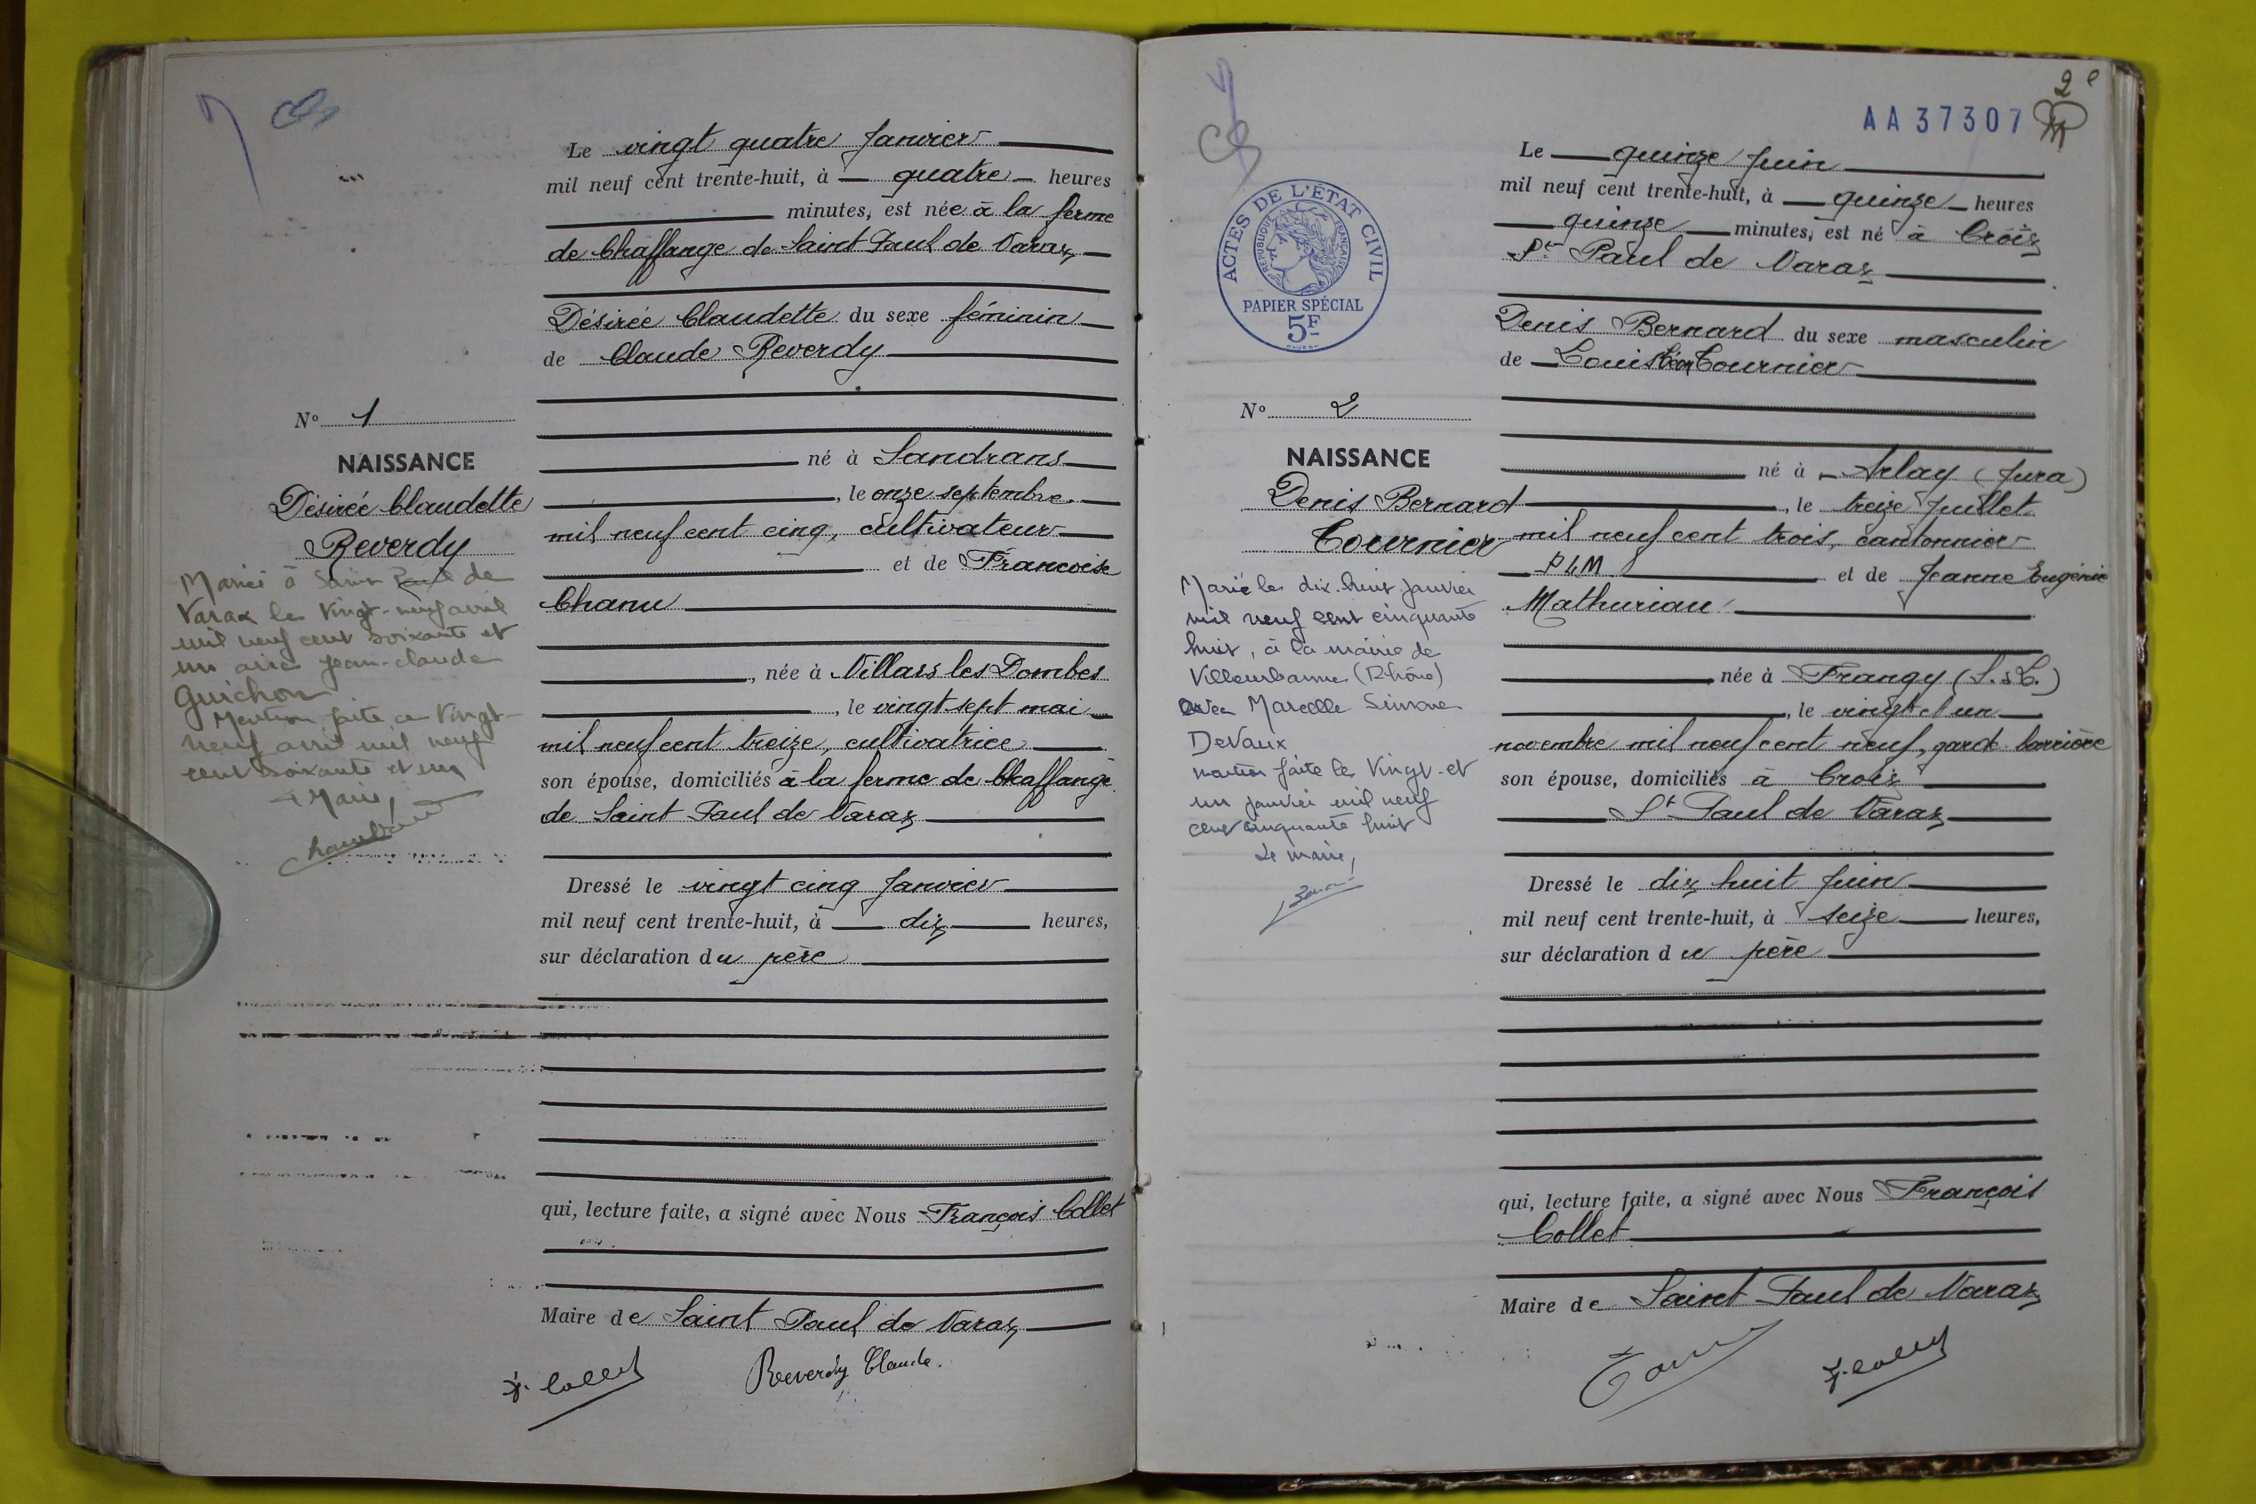 Le vingt quatre Janvier
mil neuf cent trente-huit, à quatre heures
minutes, est née à la ferme
de Chaffange de Saint Paul de Varax
Désirée Claudette du sexe féminin
de Claude Reverdy
né à Sandrans
, le onze septembre
mil neuf cent cinq, cultivateur
et de Françoise
Chanu
, née à Villars les Dombes
, le vingt sept mai
mil neuf cent treize, cultivatrice
son épouse, domiciliés à la ferme de Chaffange
de Saint Paul de Varax
Dressé le vingt cinq Janvier
mil neuf cent trente-huit, à dix heures,
sur déclaration du père
qui, lecture faite, a signé avec Nous François Collet
Maire de Saint Paul de Varax
F. Collet Reverdy Claude.
No 1
NAISSANCE
Désirée Claudette
Reverdy
Mariée à Saint Paul de
Varax le Vingt-neuf avril
mil neuf cent soixante et
un avec Jean-Claude
Guichon
Mention faite ce Vingt-
neuf avril mil neuf
cent soixante et un
Le Maire,
2e
AA37307
Le quinze Juin
mil neuf cent trente-huit, à quinze heures
quinze minutes, est né à Croix
St Paul de Varax
Denis Bernard du sexe masculin
de Louis Léon Tournier
né à Arlay (Jura)
, le treize Juillet
mil neuf cent trois, cantonnier
PLM et de Jeanne Eugénie
Mathuriau
née à Frangy (S. & L.)
, le vingt et un
novembre mil neuf cent neuf, garde barrière
son épouse, domiciliés à Croix
St Paul de Varax
Dressé le dix huit Juin
mil neuf cent trente-huit, à seize heures,
sur déclaration du père
qui, lecture faite, a signé avec Nous François
Collet
Maire de Saint Paul de Varax
F. Collet
ACTES DE L'ÉTAT CIVIL
RÉPUBLIQUE FRANÇAISE
PAPIER SPÉCIAL
5F
No 2
NAISSANCE
Denis Bernard
Tournier
Marié le dix-huit janvier
mil neuf cent cinquante
huit, à la mairie de
Villeurbanne (Rhône)
avec Marcelle Simone
Devaux
mention faite le Vingt-et
un janvier mil neuf
cent cinquante huit
Le maire,